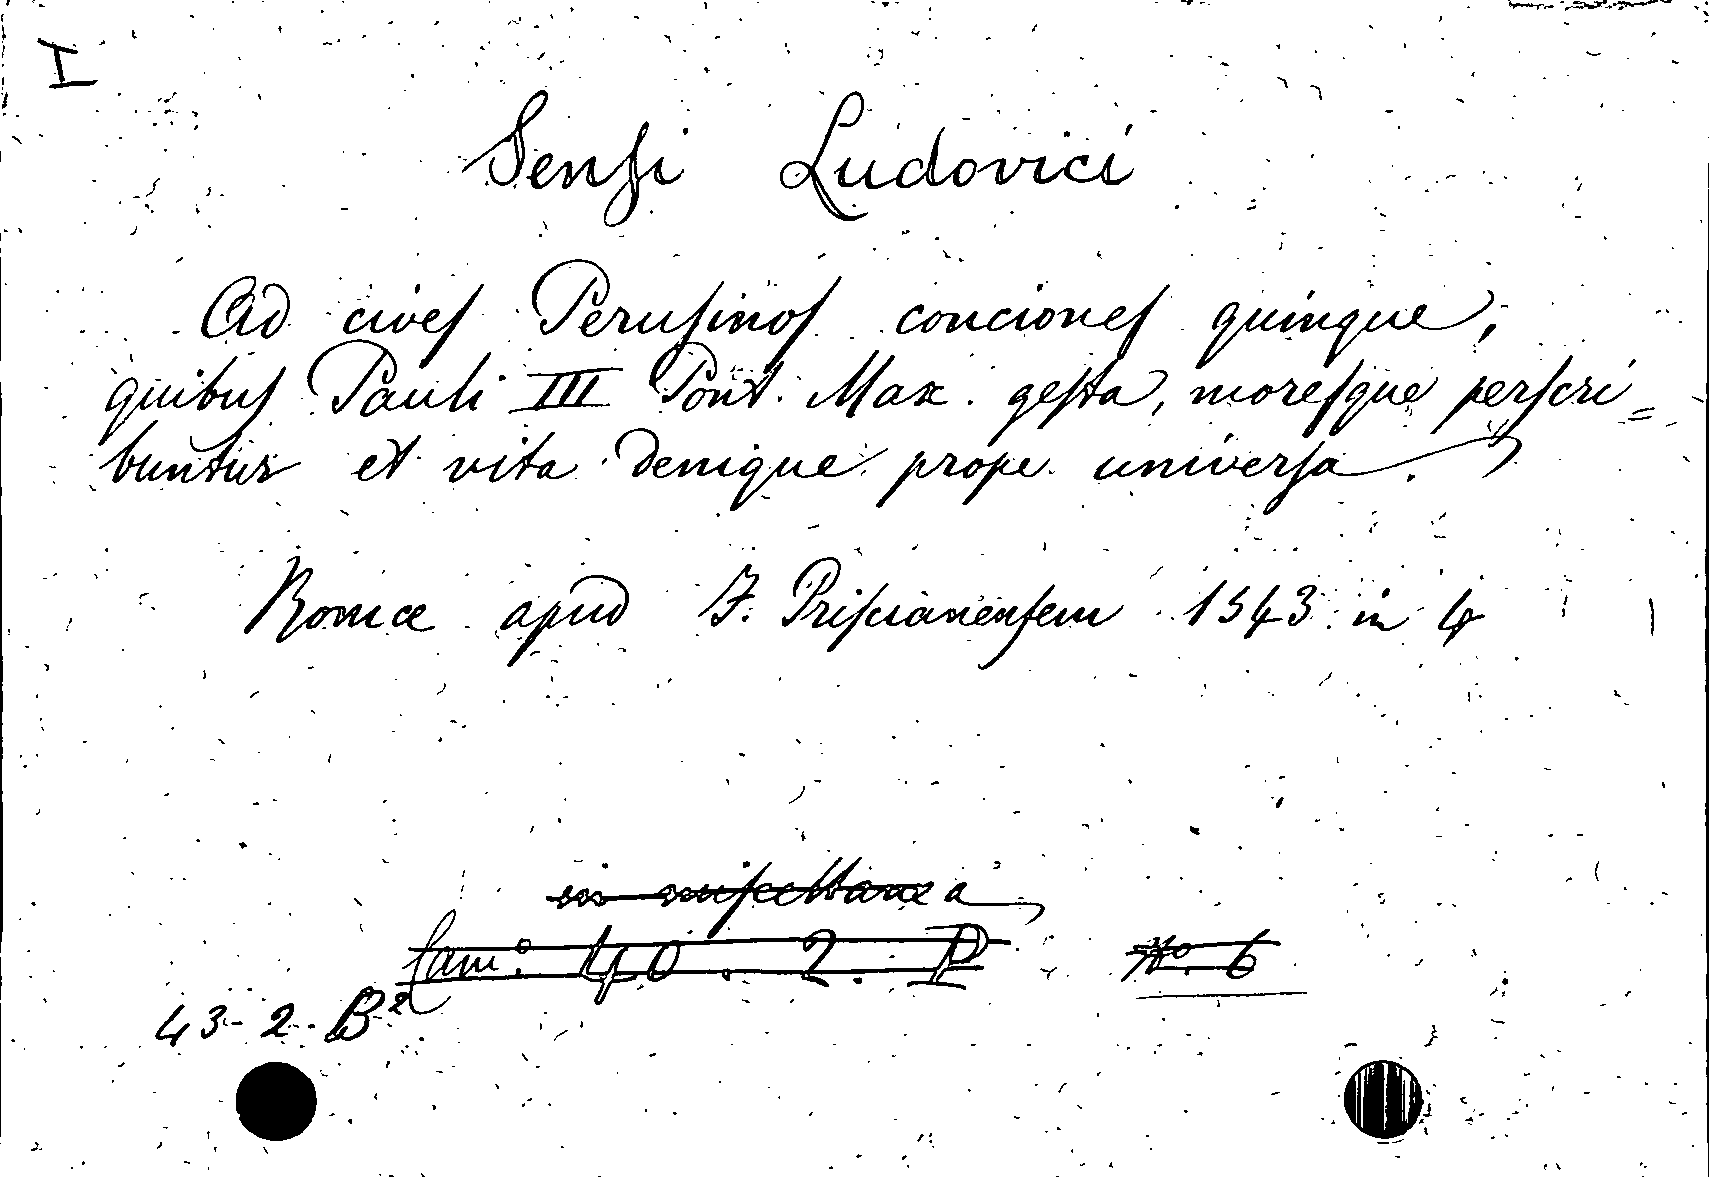 I
Sensi Ludovici
Ad cives Perusinos conciones quinque,
quibus Pauli III Pont. Max. gesta, moresque perscri=
buntur et vita denique prope universa.
Romae apud F. Priscianensem 1543 in 4
in miscellanea
Cam.° 40. 2. P N.° 6
43-2-B²